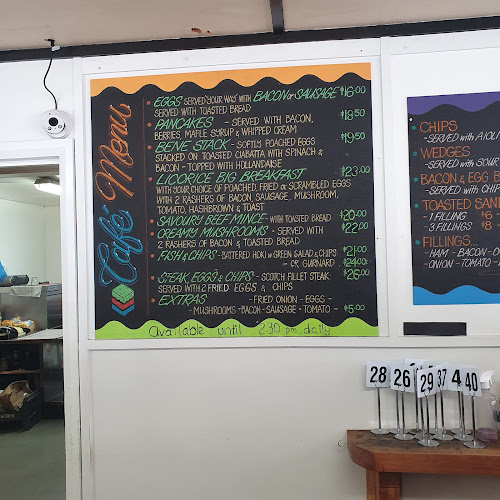 Café Menu
EGGS SERVED YOUR WAY WITH BACON or SAUSAGE $16.00
SERVED WITH TOASTED BREAD
PANCAKES - SERVED WITH BACON, $19.50
BERRIES, MAPLE SYRUP & WHIPPED CREAM
BENE STACK - SOFTLY POACHED EGGS $19.50
STACKED ON TOASTED CIABATTA WITH SPINACH &
BACON - TOPPED WITH HOLLANDAISE
LICORICE BIG BREAKFAST $23.00
WITH YOUR CHOICE OF POACHED, FRIED or SCRAMBLED EGGS
WITH 2 RASHERS OF BACON, SAUSAGE, MUSHROOM,
TOMATO, HASHBROWN & TOAST
SAVOURY BEEF MINCE - WITH TOASTED BREAD $20.00
CREAMY MUSHROOMS - SERVED WITH $22.00
2 RASHERS OF BACON & TOASTED BREAD
FISH & CHIPS - BATTERED HOKI w GREEN SALAD & CHIPS $21.00
- OR GURNARD - $24.00
STEAK EGGS & CHIPS - SCOTCH FILLET STEAK $26.00
SERVED WITH 2 FRIED EGGS & CHIPS
EXTRAS - FRIED ONION - EGGS -
- MUSHROOMS - BACON - SAUSAGE - TOMATO - $5.00
Available until 2:30 pm daily
CHIPS
- SERVED WITH AIOLI
WEDGES
- SERVED with SOUR
BACON & EGG B
- SERVED WITH
TOASTED SAND
- 1 FILLING $6
- 3 FILLINGS $8
FILLINGS...
HAM - BACON -
ONION - TOMATO -
28 26 29 37 4 40